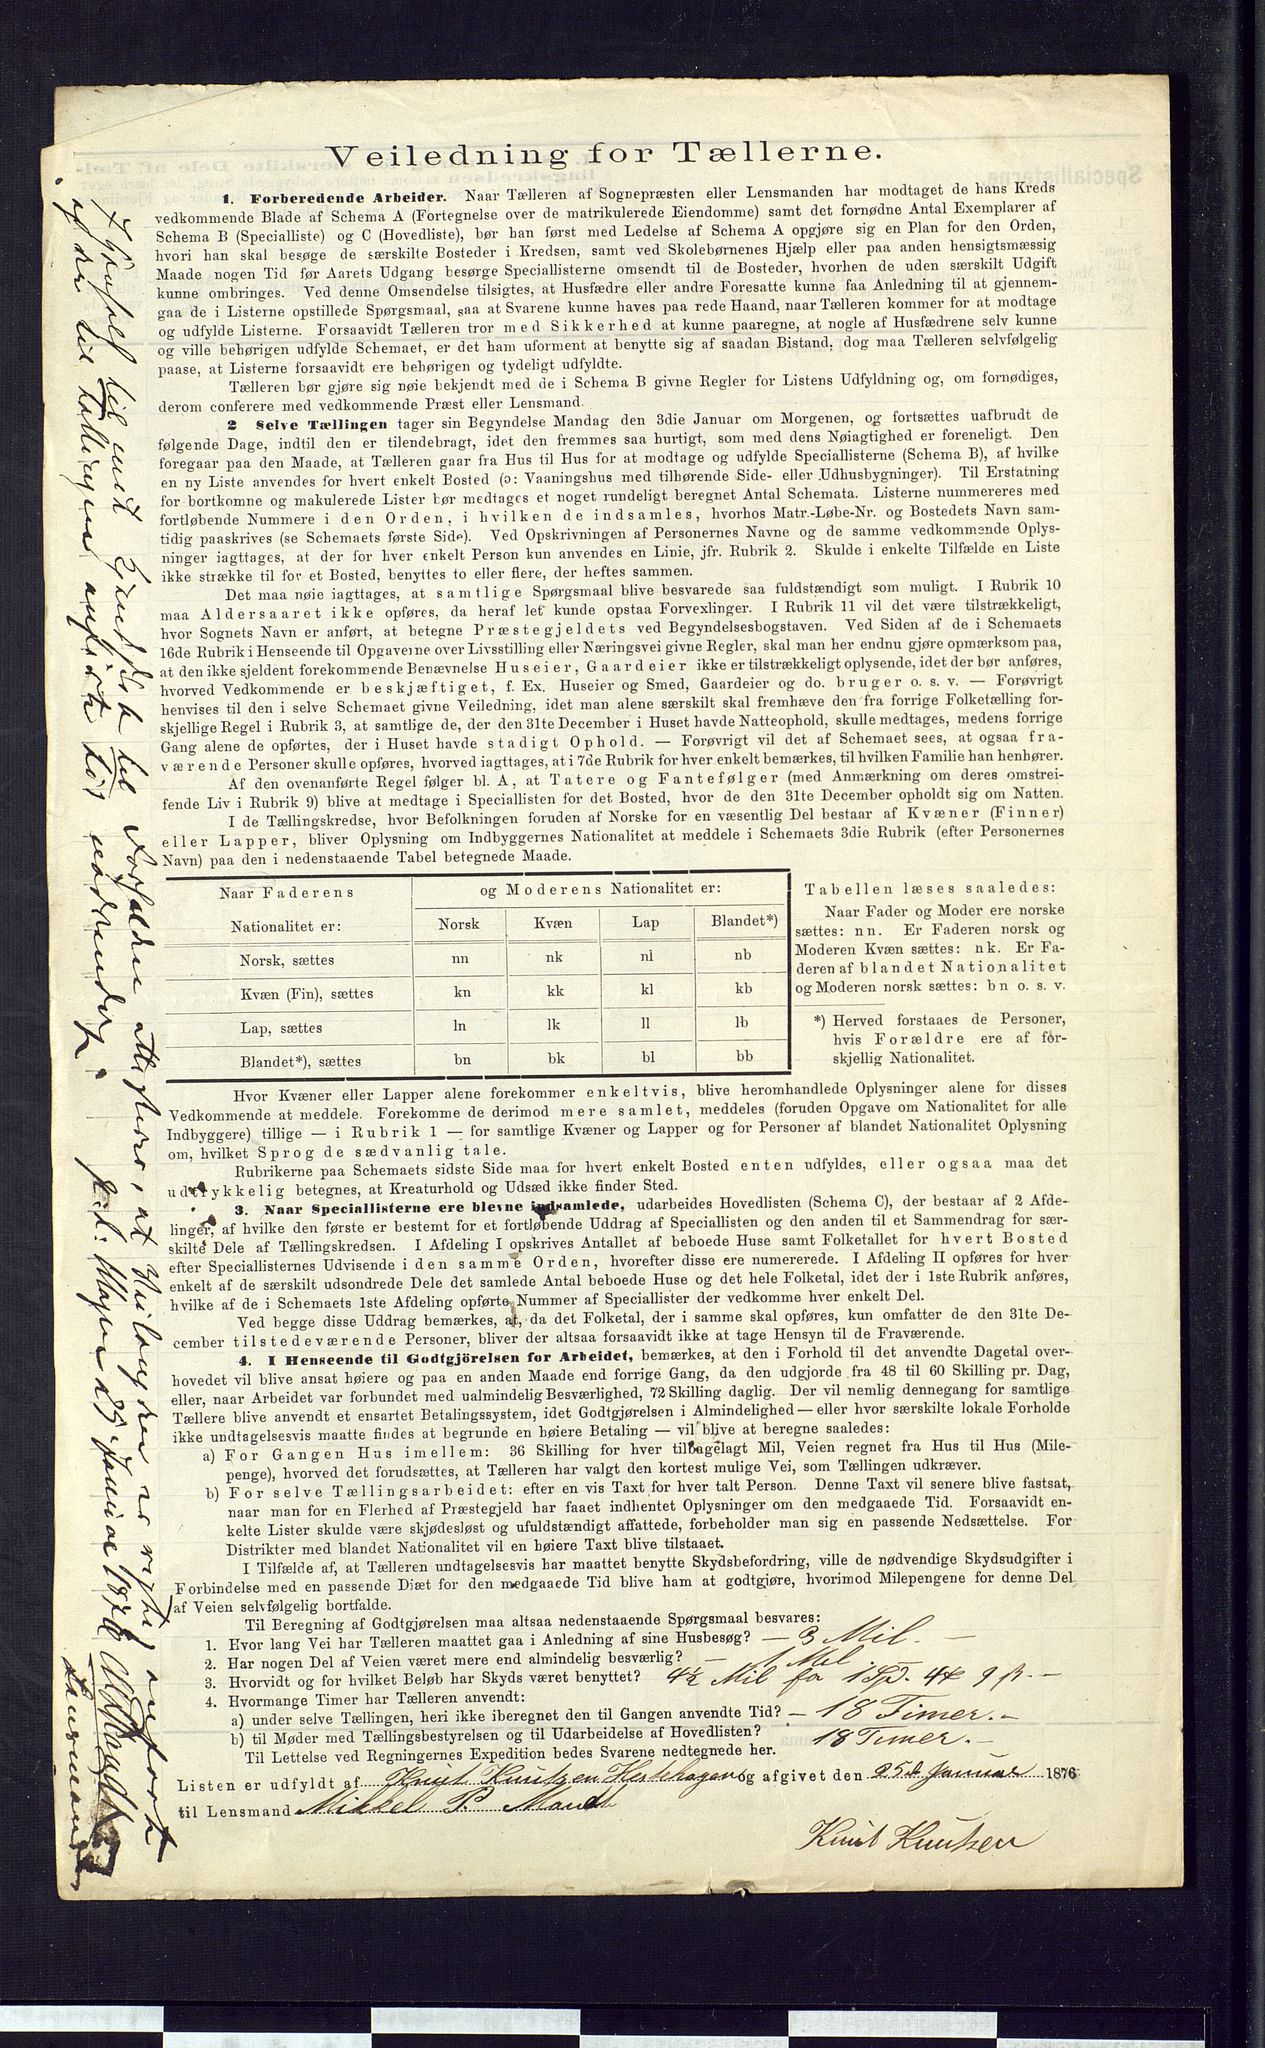 Veiledning for Tællerne.
1. Forberedende Arbeider. Naar Tælleren af Sognepræsten eller Lensmanden har modtaget de hans Kreds
vedkommende Blade af Schema A (Fortegnelse over de matrikulerede Eiendomme) samt det fornødne Antal Exemplarer af
Schema B (Specialliste) og C (Hovedliste), bør han først med Ledelse af Schema A opgjøre sig en Plan for den Orden,
hvori han skal besøge de særskilte Bosteder i Kredsen, samt ved Skolebørnenes Hjælp eller paa anden hensigtsmæssig
Maade nogen Tid før Aarets Udgang besørge Speciallisterne omsendt til de Bosteder, hvorhen de uden særskilt Udgift
kunne ombringes. Ved denne Omsendelse tilsigtes, at Husfædre eller andre Foresatte kunne faa Anledning til at gjennem-
gaa de i Listerne opstillede Spørgsmaal, saa at Svarene kunne haves paa rede Haand, naar Tælleren kommer for at modtage
og udfylde Listerne. Forsaavidt Tælleren tror med Sikkerhed at kunne paaregne, at nogle af Husfædrene selv kunne
og ville behørigen udfylde Schemaet, er det ham uforment at benytte sig af saadan Bistand, dog maa Tælleren selvfølgelig
paase, at Listerne forsaavidt ere behørigen og tydeligt udfyldte.
Tælleren bør gjøre sig nøie bekjendt med de i Schema B givne Regler for Listens Udfyldning og, om fornødiges,
derom conferere med vedkommende Præst eller Lensmand.
2 Selve Tællingen tager sin Begyndelse Mandag den 3die Januar om Morgenen, og fortsættes uafbrudt de
følgende Dage, indtil den er tilendebragt, idet den fremmes saa hurtigt, som med dens Nøiagtighed er foreneligt. Den
foregaar paa den Maade, at Tælleren gaar fra Hus til Hus for at modtage og udfylde Speciallisterne (Schema B), af hvilke
en ny Liste anvendes for hvert enkelt Bosted (ɔ: Vaaningshus med tilhørende Side- eller Udhusbygninger). Til Erstatning
for bortkomne og makulerede Lister bør medtages et noget rundeligt beregnet Antal Schemata. Listerne nummereres med
fortløbende Nummere i den Orden, i hvilken de indsamles, hvorhos Matr.-Løbe-Nr. og Bostedets Navn sam-
tidig paaskrives (se Schemaets første Side). Ved Opskrivningen af Personernes Navne og de samme vedkommende Oplys-
ninger iagttages, at der for hver enkelt Person kun anvendes en Linie, jfr. Rubrik 2. Skulde i enkelte Tilfælde en Liste
ikke strække til for et Bosted, benyttes to eller flere, der heftes sammen.
Det maa nøie iagttages, at samtlige Spørgsmaal blive besvarede saa fuldstændigt som muligt. I Rubrik 10
maa Aldersaaret ikke opføres, da heraf let kunde opstaa Forvexlinger. I Rubrik 11 vil det være tilstrækkeligt,
hvor Sognets Navn er anført, at betegne Præstegjeldets ved Begyndelsesbogstaven. Ved Siden af de i Schemaets
16de Rubrik i Henseende til Opgaverne over Livsstilling eller Næringsvei givne Regler, skal man her endnu gjøre opmærksom paa,
at den ikke sjeldent forekommende Benævnelse Huseier, Gaardeier ikke er tilstrækkeligt oplysende, idet der bør anføres,
hvorved Vedkommende er beskjæftiget, f. Ex. Huseier og Smed, Gaardeier og do. bruger o. s. v. — Forøvrigt
henvises til den i selve Schemaet givne Veiledning, idet man alene særskilt skal fremhæve den fra forrige Folketælling for-
skjellige Regel i Rubrik 3, at samtlige de, der den 31te December i Huset havde Natteophold, skulle medtages, medens forrige
Gang alene de opførtes, der i Huset havde stadigt Ophold. — Forøvrigt vil det af Schemaet sees, at ogsaa fra-
værende Personer skulle opføres, hvorved iagttages, at i 7de Rubrik for hver enkelt bemærkes, til hvilken Familie han henhører.
Af den ovenanførte Regel følger bl. A, at Tatere og Fantefølger (med Anmærkning om deres omstrei-
fende Liv i Rubrik 9) blive at medtage i Speciallisten for det Bosted, hvor de den 31te December opholdt sig om Natten.
I de Tællingskredse, hvor Befolkningen foruden af Norske for en væsentlig Del bestaar af Kvæner (Finner)
eller Lapper, bliver Oplysning om Indbyggernes Nationalitet at meddele i Schemaets 3die Rubrik (efter Personernes
Navn) paa den i nedenstaaende Tabel betegnede Maade.
Naar Faderens og Moderens Nationalitet er:
Nationalitet er: Norsk Kvæn Lap Blandet*)
Norsk, sættes nn nk nl nb
Kvæn (Fin), sættes kn kk kl kb
Lap, sættes ln lk ll lb
Blandet*), sættes bn bk bl bb
Tabellen læses saaledes:
Naar Fader og Moder ere norske
sættes: nn. Er Faderen norsk og
Moderen Kvæn sættes: nk. Er Fa-
deren af blandet Nationalitet
og Moderen norsk sættes: bn o. s. v.
*) Herved forstaaes de Personer,
hvis Forældre ere af for-
skjellig Nationalitet.
Hvor Kvæner eller Lapper alene forekommer enkeltvis, blive heromhandlede Oplysninger alene for disses
Vedkommende at meddele. Forekomme de derimod mere samlet, meddeles (foruden Opgave om Nationalitet for alle
Indbyggere) tillige — i Rubrik 1 — for samtlige Kvæner og Lapper og for Personer af blandet Nationalitet Oplysning
om, hvilket Sprog de sædvanlig tale.
Rubrikerne paa Schemaets sidste Side maa for hvert enkelt Bosted enten udfyldes, eller ogsaa maa det
udtrykkelig betegnes, at Kreaturhold og Udsæd ikke finder Sted.
3. Naar Speciallisterne ere blevne indsamlede, udarbeides Hovedlisten (Schema C), der bestaar af 2 Afde-
linger, af hvilke den første er bestemt for et fortløbende Uddrag af Speciallisten og den anden til et Sammendrag for sær-
skilte Dele af Tællingskredsen. I Afdeling I opskrives Antallet af beboede Huse samt Folketallet for hvert Bosted
efter Speciallisternes Udvisende i den samme Orden, hvorefter disse ere numererede. I Afdeling II opføres for hver
enkelt af de særskilt udsondrede Dele det samlede Antal beboede Huse og det hele Folketal, idet der i 1ste Rubrik anføres,
hvilke af de i Schemaets 1ste Afdeling opførte Nummer af Speciallister der vedkomme hver enkelt Del.
Ved begge disse Uddrag bemærkes, at, da det Folketal, der i samme skal opføres, kun omfatter de den 31te De-
cember tilstedeværende Personer, bliver der altsaa forsaavidt ikke at tage Hensyn til de Fraværende.
4. I Henseende til Godtgjörelsen for Arbeidet, bemærkes, at den i Forhold til det anvendte Dagetal over-
hovedet vil blive ansat høiere og paa en anden Maade end forrige Gang, da den udgjorde fra 48 til 60 Skilling pr. Dag,
eller, naar Arbeidet var forbundet med ualmindelig Besværlighed, 72 Skilling daglig. Der vil nemlig dennegang for samtlige
Tællere blive anvendt et ensartet Betalingssystem, idet Godtgjørelsen i Almindelighed — eller hvor særskilte lokale Forholde
ikke undtagelsesvis maatte findes at begrunde en høiere Betaling — vil blive at beregne saaledes:
a) For Gangen Hus imellem: 36 Skilling for hver tilbagelagt Mil, Veien regnet fra Hus til Hus (Mile-
penge), hvorved det forudsættes, at Tælleren har valgt den kortest mulige Vei, som Tællingen udkræver.
b) For selve Tællingsarbeidet: efter en vis Taxt for hver talt Person. Denne Taxt vil senere blive fastsat,
naar man for en Flerhed af Præstegjeld har faaet indhentet Oplysninger om den medgaaede Tid. Forsaavidt en-
kelte Lister skulde være skjødesløst og ufuldstændigt affattede, forbeholder man sig en passende Nedsættelse. For
Distrikter med blandet Nationalitet vil en høiere Taxt blive tilstaaet.
I Tilfælde af, at Tælleren undtagelsesvis har maattet benytte Skydsbefordring, ville de nødvendige Skydsudgifter i
Forbindelse med en passende Diæt for den medgaaede Tid blive ham at godtgjøre, hvorimod Milepengene for denne Del
af Veien selvfølgelig bortfalde.
Til Beregning af Godtgjørelsen maa altsaa nedenstaaende Spørgsmaal besvares:
1. Hvor lang Vei har Tælleren maattet gaa i Anledning af sine Husbesøg? — 3 Mil. —
2. Har nogen Del af Veien været mere end almindelig besværlig? — 1 Mil. —
3. Horvidt og for hvilket Beløb har Skyds været benyttet? 4½ Mil for 1 Spd. 4 9 β. —
4. Hvormange Timer har Tælleren anvendt:
a) under selve Tællingen, heri ikke iberegnet den til Gangen anvendte Tid? — 18 Timer. —
b) til Møder med Tællingsbestyrelsen og til Udarbeidelse af Hovedlisten? 18 Timer. —
Til Lettelse ved Regningernes Expedition bedes Svarene nedtegnede her.
Listen er udfyldt af Knut Knutsen Hestehagen og afgivet den 25de Januar 1876
til Lensmand Mikkel P. Mandt
Knut Knutsen
I Henhold til mit Kjendskab til Forholdene attesteres, at Veilængden er rigtig anført
og den til Tællingen anførte Tid nødvendig.
25 Januar 1876
Lensmand